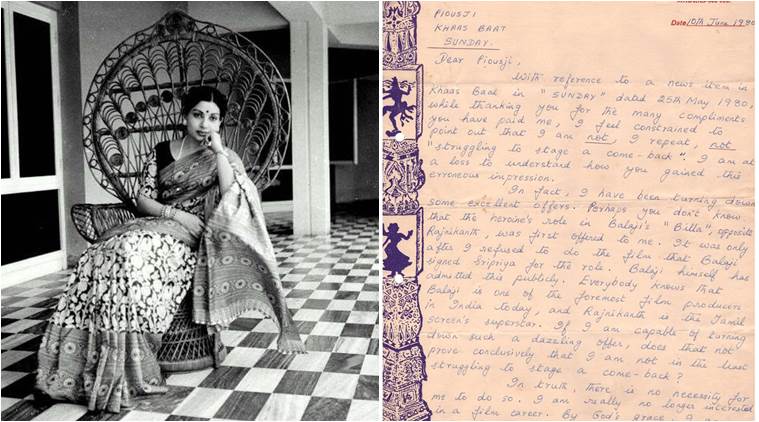 Date 10th June 1980
PIOUSJI
KHAAS BAAT
SUNDAY.
Dear Piousji,
With reference to a news item in
Khaas Baat in "SUNDAY" dated 25th May 1980,
while thanking you for the many compliments
you have paid me, I feel constrained to
point out that I am not, I repeat, not
"struggling to stage a come-back". I am at
a loss to understand how you gained this
erroneous impression.
In fact, I have been turning down
some excellent offers. Perhaps you don't know
that the heroine's role in Balaji's "Billa", opposite
Rajnikanth, was first offered to me. It was only
after I refused to do the film that Balaji
signed Sripriya for the role. Balaji himself has
admitted this publicly. Everybody knows that
Balaji is one of the foremost film producers
in India today, and Rajnikanth is the Tamil
screen's superstar. If I am capable of turning
down such a dazzling offer, does that not
prove conclusively that I am not in the least
struggling to stage a come-back?
In truth, there is no necessity for
me to do so. I am really no longer interested
in a film career. By God's grace, I